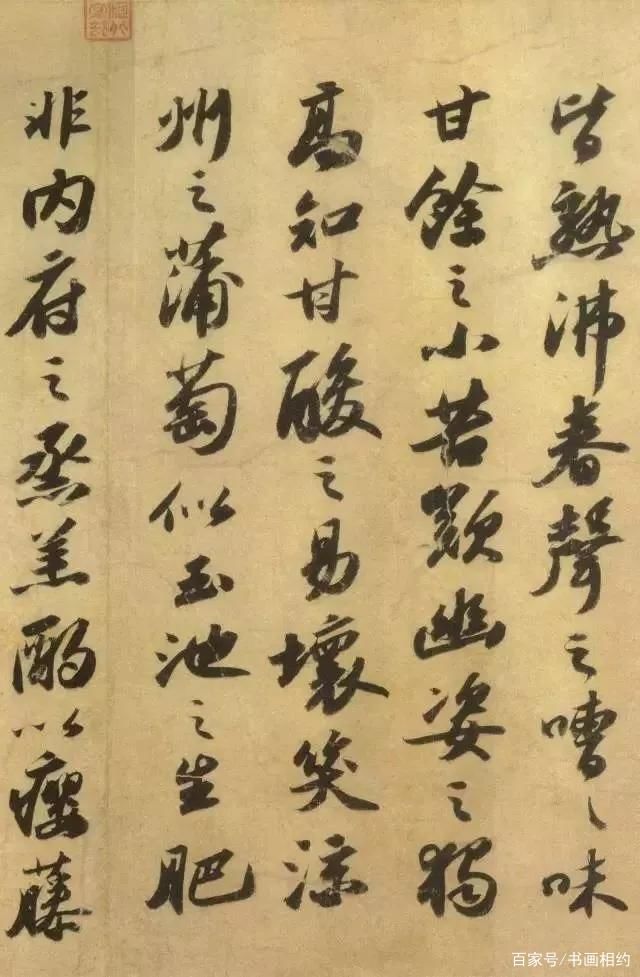 皆熟沸舂聲之嘈〻味
甘餘之小苦歎幽姿之獨
高知甘酸之易壞笑涼
州之蒲萄似玉池之生肥
非内府之烝羔酌以癭藤
百家号/书画相约